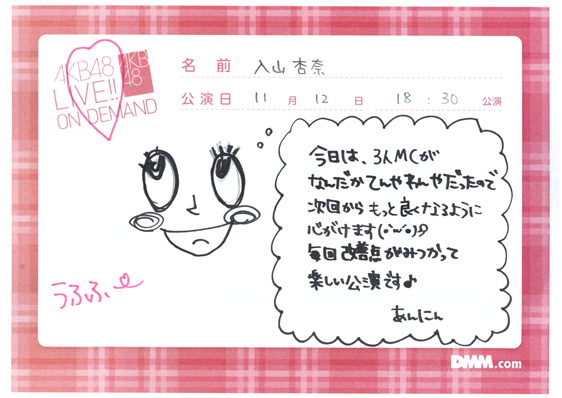 AKB48
LIVE!!
ON DEMAND
AKB
48
名前 入山杏奈
公演日 11月12日 18:30公演
今日は、3人MCが
なんだかてんやわんやだったので
次回からもっと良くなるように
心がけます(･ω･)
毎回改善点がみつかって
楽しい公演です♪
あんにん
うふふ、
DMM.com